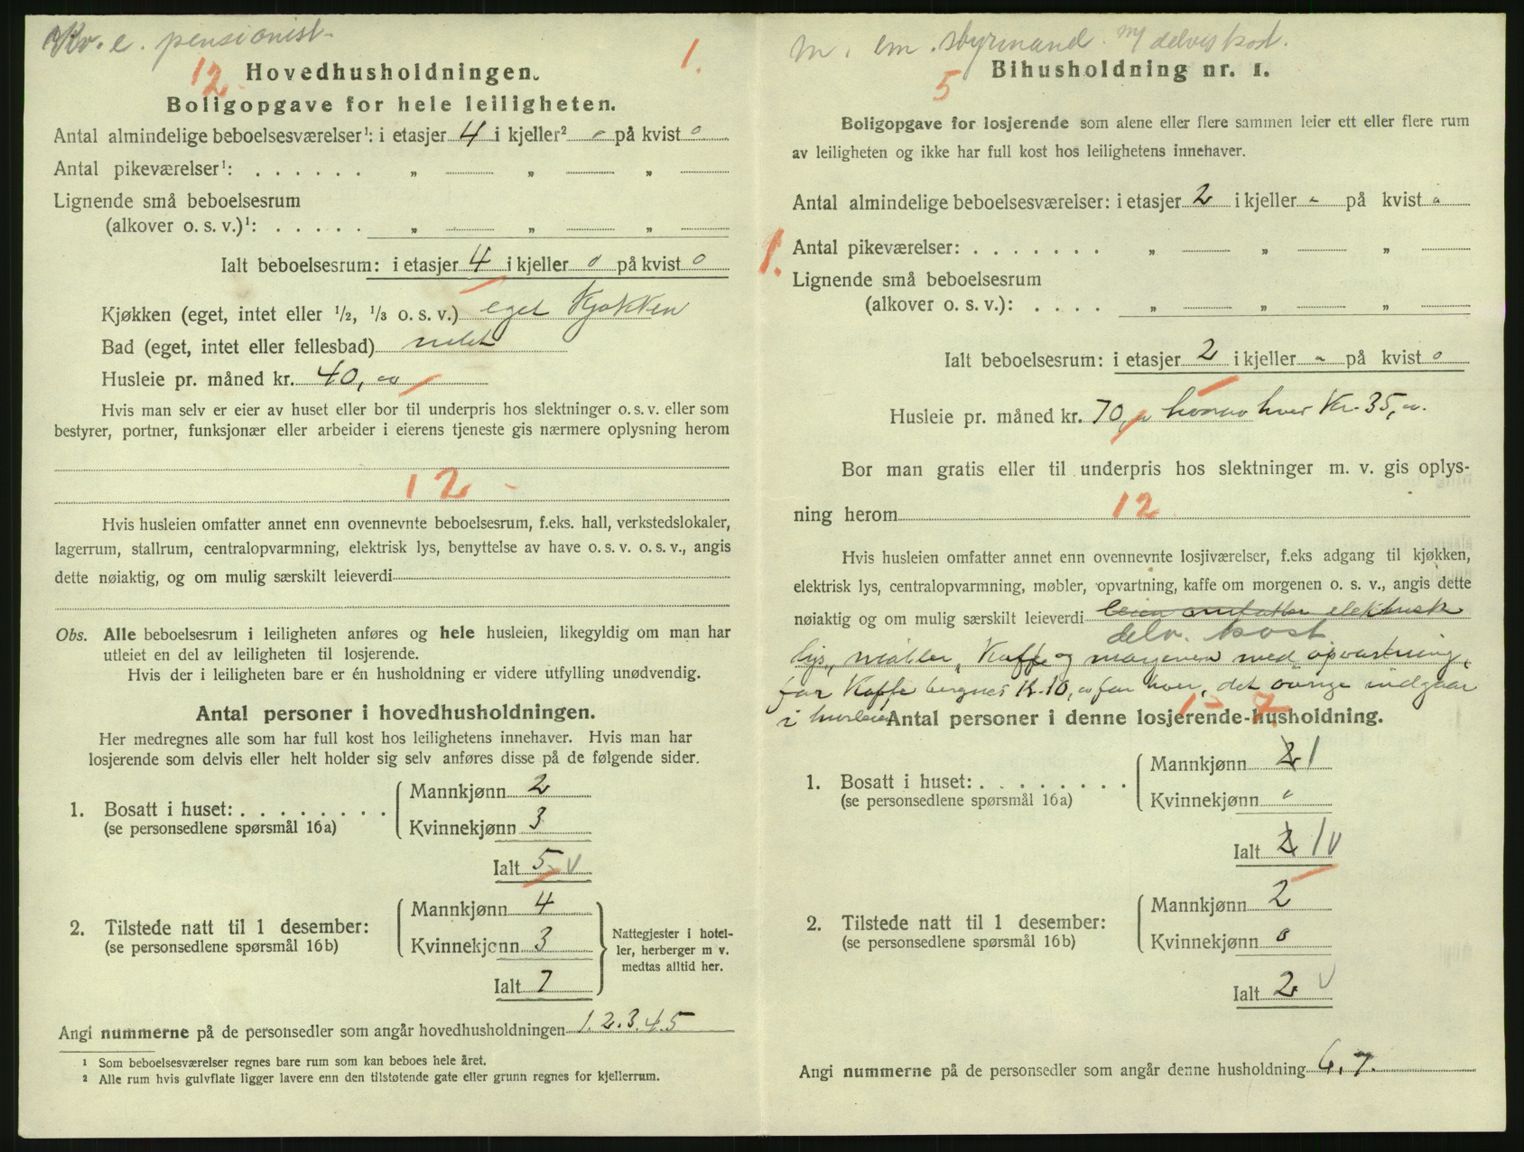 Kv. e. pensionist.
12. 1.
Hovedhusholdningen.
Boligopgave for hele leiligheten.
Antal almindelige beboelsesværelser¹: i etasjer 4 i kjeller² o på kvist o
Antal pikeværelser¹: . . . . . . „ „ „
Lignende små beboelsesrum
(alkover o. s. v.)¹: . . . . . „ „ „
Ialt beboelsesrum: i etasjer 4 i kjeller o på kvist o
Kjøkken (eget, intet eller ½, ⅓ o. s. v.) eget Kjøkken
Bad (eget, intet eller fellesbad) intet
Husleie pr. måned kr. 40,00
Hvis man selv er eier av huset eller bor til underpris hos slektninger o. s. v. eller som
bestyrer, portner, funksjonær eller arbeider i eierens tjeneste gis nærmere oplysning herom
12 -
Hvis husleien omfatter annet enn ovennevnte beboelsesrum, f.eks. hall, verkstedslokaler,
lagerrum, stallrum, centralopvarmning, elektrisk lys, benyttelse av have o. s. v. o. s. v., angis
dette nøiaktig, og om mulig særskilt leieverdi
Obs. Alle beboelsesrum i leiligheten anføres og hele husleien, likegyldig om man har
utleiet en del av leiligheten til losjerende.
Hvis der i leiligheten bare er én husholdning er videre utfylling unødvendig.
Antal personer i hovedhusholdningen.
Her medregnes alle som har full kost hos leilighetens innehaver. Hvis man har
losjerende som delvis eller helt holder sig selv anføres disse på de følgende sider.
1. Bosatt i huset: . . . . . . . . Mannkjønn 2
(se personsedlene spørsmål 16a) Kvinnekjønn 3
Ialt 5 v
2. Tilstede natt til 1 desember: Mannkjønn 4
(se personsedlene spørsmål 16b) Kvinnekjønn 3
Ialt 7
Nattegjester i hotel-
ler, herberger m v.
medtas alltid her.
Angi nummerne på de personsedler som angår hovedhusholdningen 1.2.3.4.5
¹ Som beboelsesværelser regnes bare rum som kan beboes hele året.
² Alle rum hvis gulvflate ligger lavere enn den tilstøtende gate eller grunn regnes for kjellerrum.
m. em. styrmand. m/ delvis kost.
5
Bihusholdning nr. 1.
Boligopgave for losjerende som alene eller flere sammen leier ett eller flere rum
av leiligheten og ikke har full kost hos leilighetens innehaver.
Antal almindelige beboelsesværelser: i etasjer 2 i kjeller - på kvist o
1. Antal pikeværelser: . . . . . . . „ „ „
Lignende små beboelsesrum
(alkover o. s. v.): . . . . „ „ „
Ialt beboelsesrum: i etasjer 2 i kjeller - på kvist o
Husleie pr. måned kr. 70,00 hver Kr. 35,00.
Bor man gratis eller til underpris hos slektninger m. v. gis oplys-
ning herom 12
Hvis husleien omfatter annet enn ovennevnte losjiværelser, f.eks adgang til kjøkken,
elektrisk lys, centralopvarmning, møbler, opvartning, kaffe om morgenen o. s. v., angis dette
nøiaktig og om mulig særskilt leieverdi leien omfatter elektrisk
delv. kost
lys, møbler, Kaffe og morgenen med opvartning,
for Kaffe beregnes K. 10,00 for hver, det øvrige indgaar
i husleien
1 - 7
Antal personer i denne losjerende-husholdning.
1. Bosatt i huset: . . . . . . . . Mannkjønn 2 1
(se personsedlene spørsmål 16a) Kvinnekjønn o
Ialt 2 1 v
2. Tilstede natt til 1 desember: Mannkjønn 2
(se personsedlene spørsmål 16b) Kvinnekjønn o
Ialt 2 v
Angi nummerne på de personsedler som angår denne husholdning 6, 7.